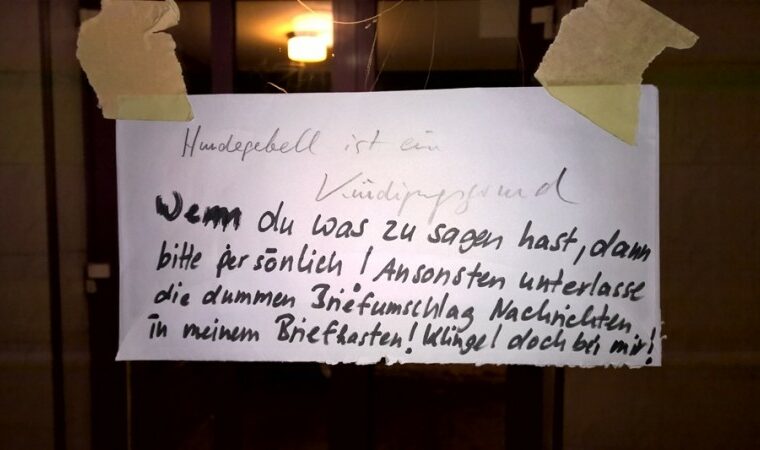 Hundegebell ist ein
Kündigungsgrund
Wenn du was zu sagen hast, dann
bitte persönlich! Ansonsten unterlasse
die dummen Briefumschlag Nachrichten
in meinem Briefkasten! Klingel doch bei mir!